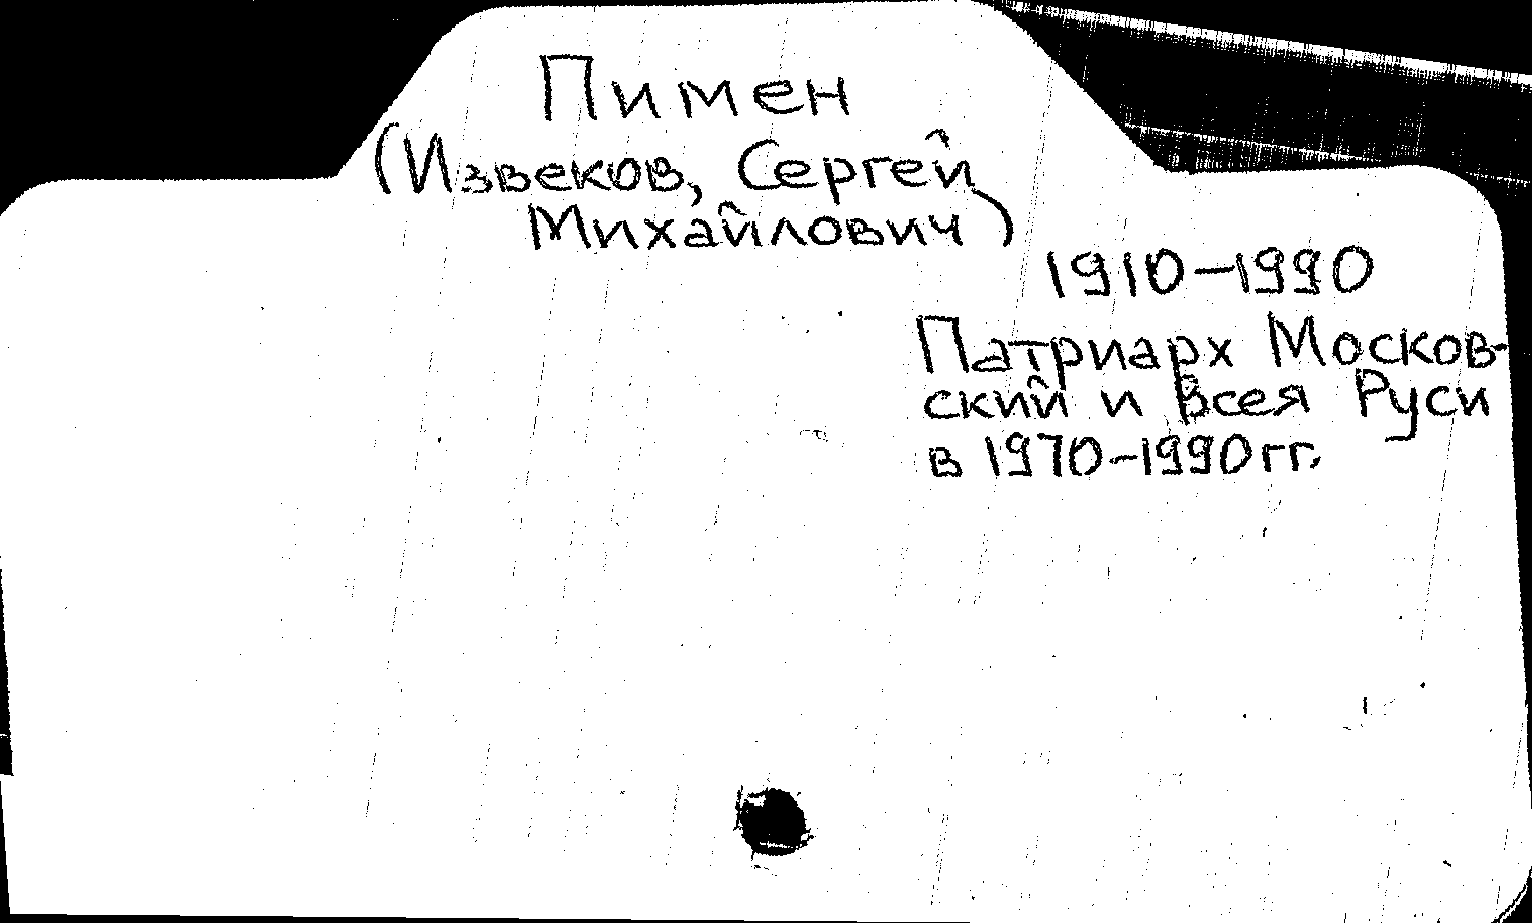 Пимен
(Извеков, Сергей
Михайлович)
1910–1990
Патриарх Москов-
ский и всея Руси
в 1970–1990гг.